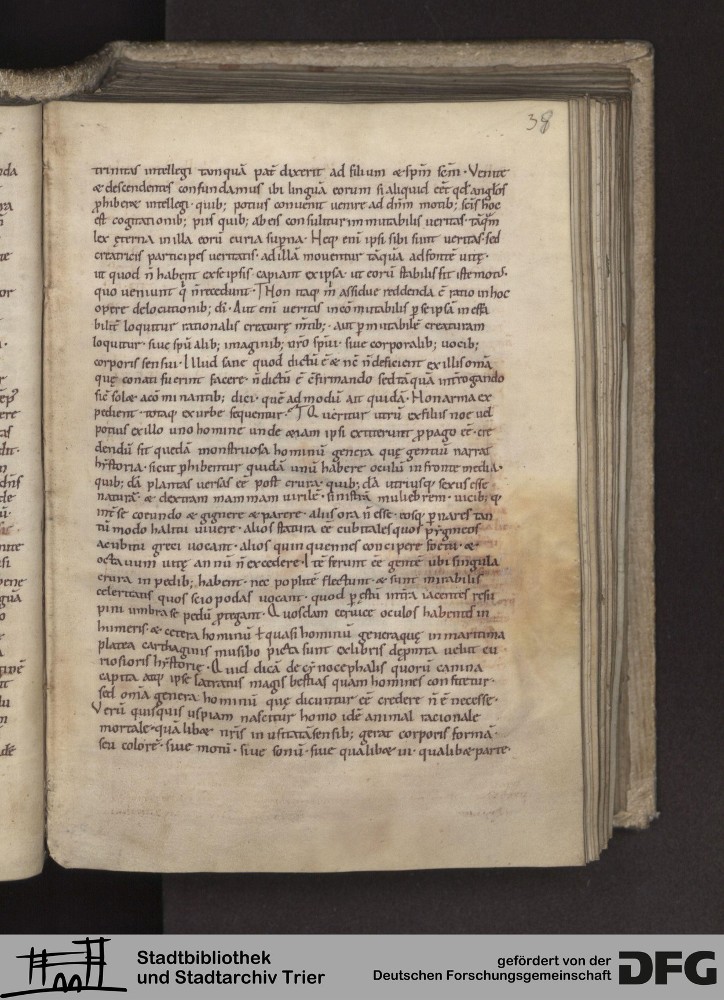 38
trinitas intellegi tanquā pat̄ dixerit ad filium & sp̄m sc̄m · Venite
& descendentes confundamus ibi linguā eorum si aliquid eēt qđ anglōs
ꝓhiberet intellegi · quib; potius convenit venire ad dn̄m motib; sc̄is hoc
est cogitationib; piis quib; ab eis consulitur inmutabilis veritas · tāqꝫ̄
lex ęterna in illa eorū curia suꝑna · Neqꝫ eni ipsi sibi sunt veritas · sed
creatricis participes veritatis · ad illā moventur tāquā ad fontē vitę ·
ut quod n̄ habent ex se ipsis capiant ex ipsa · ut eorū stabilis sit iste motus ·
quo veniunt q̇ n̄ recedunt · Non itaqꝫ m̄ assidue reddenda ē ratio in hoc
opere de locutionib; dī · Aut eni veritas incōmutabilis ꝑ se ipsā in effa
bilit̄ loquitur rationalis creaturę m̄tib; · aut ꝑ mutabilē creaturam
loquitur · sive spūalib; imaginib; nr̄o spūi · sive corporalib; vocib;
corporis sensui · Illud sane quod dictū ē & nc̄ n̄ deficient ex illis om̄a
quę conati fuerint facere · n̄ dictū ē c̄firmando sed tāquā int̄rogando
sic̄ sol& a cōminantib; dici · quē ad modū ait quidā · Non arma ex
pedient · totaqꝫ ex urbe sequentur · Quęritur utrū ex filiis noe vel
potius ex illo uno homine unde etiam ipsi extiterunt ꝓpago ēē · cre
dendū sit quedā monstruosa hominū genera quę gentiū narrat
hystoria · sicut ꝑhibentur quidā unū habere oculū in fronte media ·
quib; dā plantas versas ēē post crura · quib; dā utriusqꝫ sexus esse
naturā · & dextram mammam virilē · sinistrā muliebrem · vicib; qꝫ
int̄ se coeundo & gignere & parere · aliis ora n̄ esse · eosqꝫ ꝑ nares tan
tū modo halitu vivere · alios statura ēē cubitales quos pygmeos
a cubitu greci vocant · alios quinquennes concipere foetū · &
octavum vitę annū n̄ excedere · Itē ferunt ēē gentē ubi singula
crura in pedib; habent · nec poplitē flectunt · & sunt mirabilis
celeritatis quos sciopodas vocant · quod ꝑ ęstū in t̄ra iacentes resu
pini umbra se pedū ꝓtegant · Quosdam cervice oculos habentes in
humeris · & cetera hominū ł quasi hominū genera quę in maritima
platea carthaginis musibo picta sunt ex libris deꝓmta velut cu
riosioris hystorię · Quid dicā de cynocephalis quorū canina
capita atqꝫ ipse latratus magis bestias quam homines confitetur ·
sed om̄a genera hominū quę dicuntur ēē credere n̄ ē necesse ·
Verū quisquis uspiam nascitur homo idē animal racionale
mortale · quā lib& nr̄is in usitatā sensib; gerat corporis formā ·
seu colorē · sive motū · sive sonū · sive qualib& in · qualib& parte ·
Stadtbibliothek
und Stadtarchiv Trier
gefördert von der
Deutschen Forschungsgemeinschaft
DFG